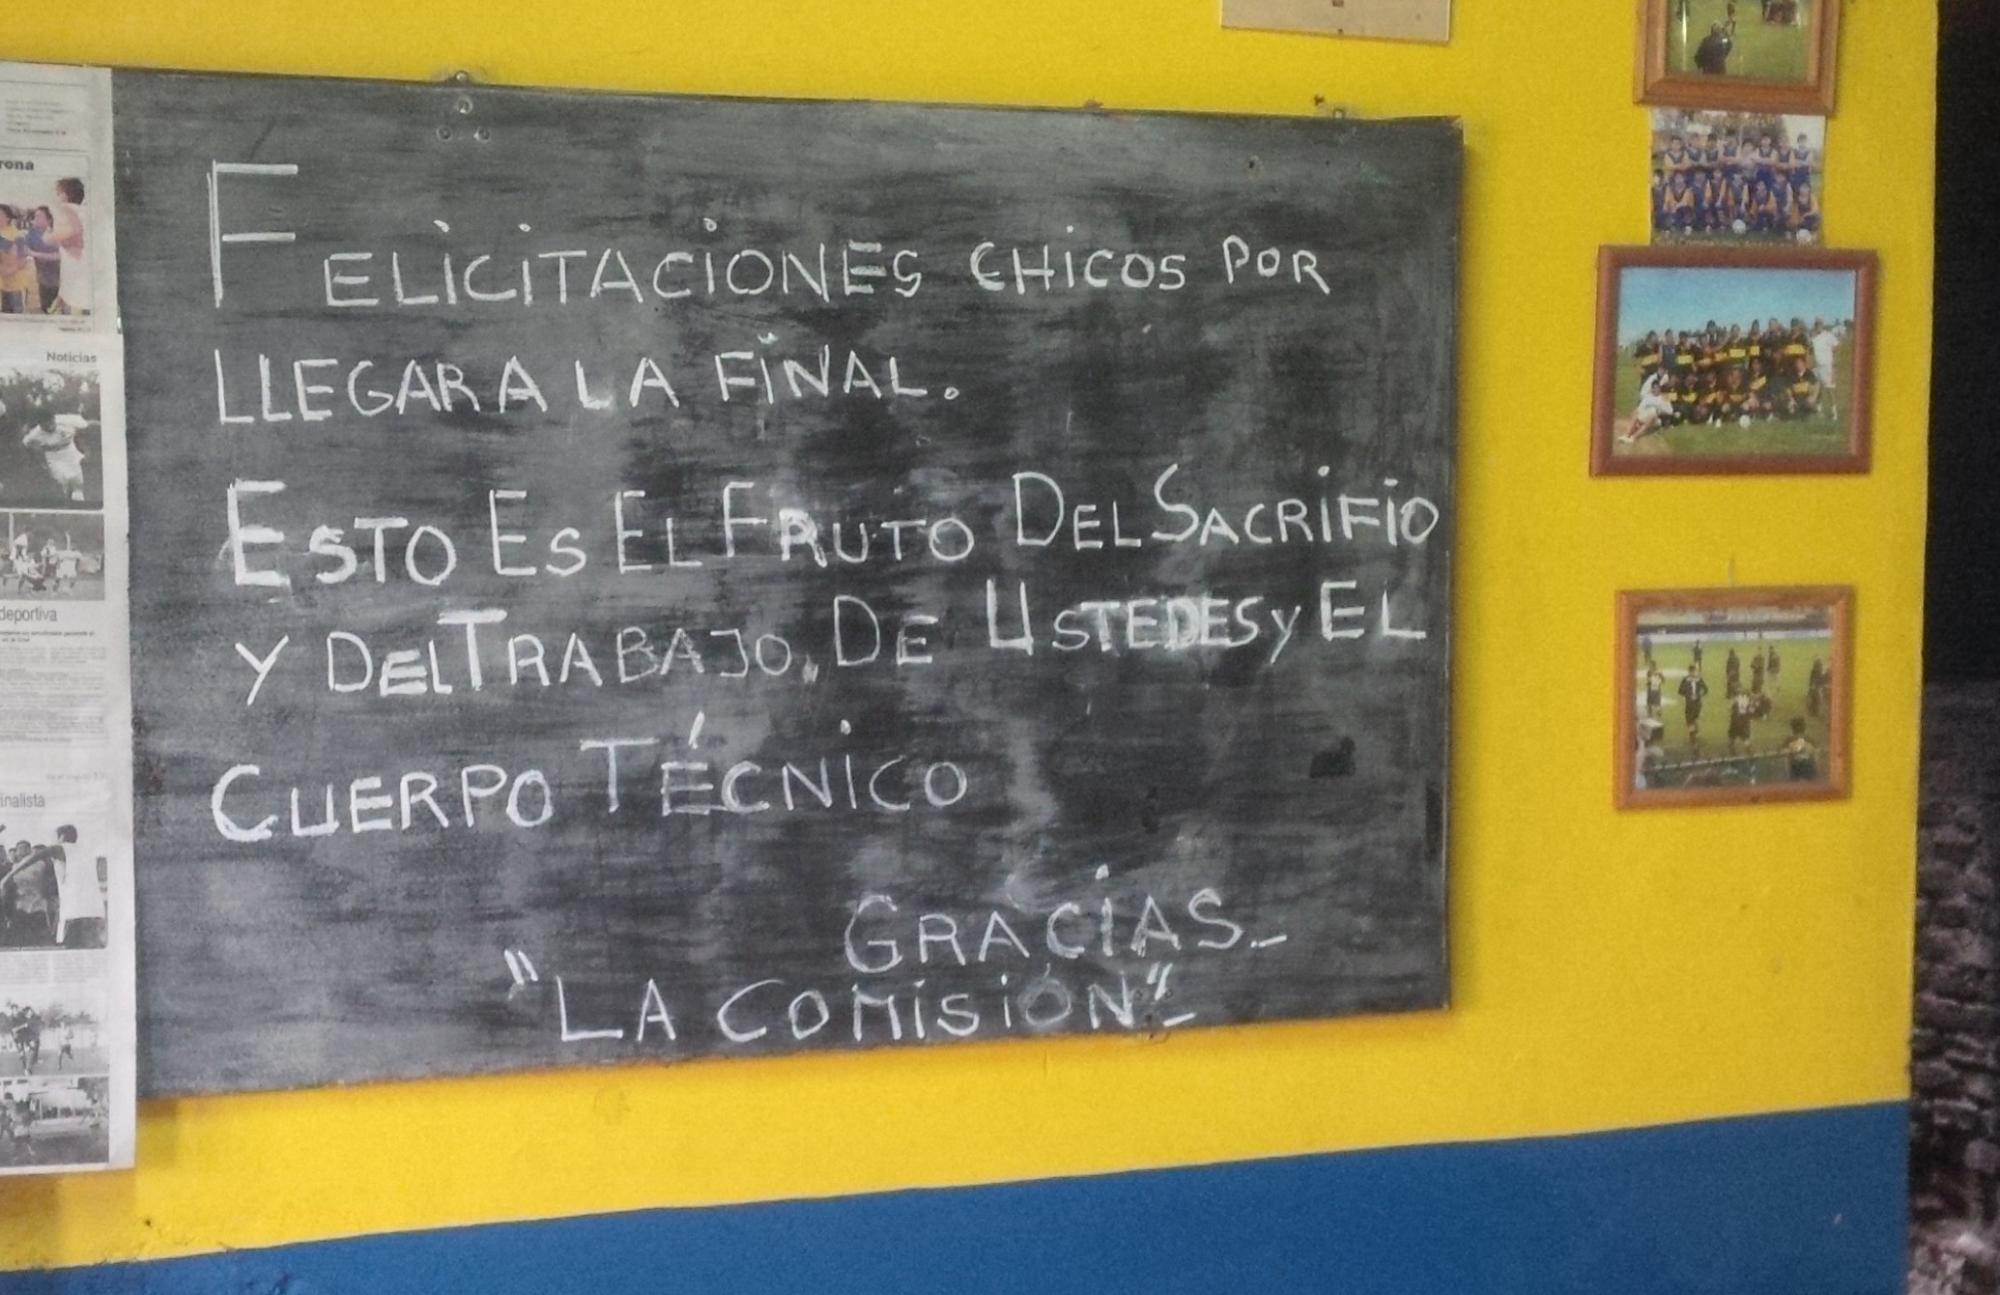 FELICITACIONES CHICOS POR
LLEGAR A LA FINAL.
ESTO ES EL FRUTO DEL SACRIFIO
Y DEL TRABAJO, DE USTEDES Y EL
CUERPO TÉCNICO
GRACIAS_
"LA COMISIÓN"_
rena
Noticias
deportiva
inalista